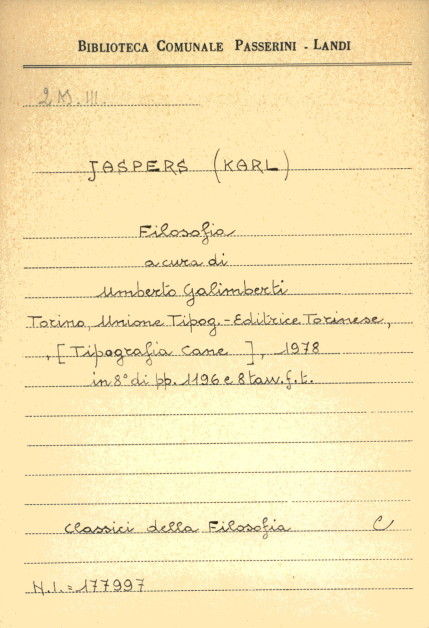 BIBLIOTECA COMUNALE PASSERINI - LANDI
JASPERS (KARL)
Filosofia
a cura di
Umberto Galimberti
Torino, Unione Tipog.-Editrice Torinese,
[Tipografia Cane], 1978
in 8° di pp. 1196 e 8 tav. f. t.
Classici della Filosofia C
N.I. = 177997